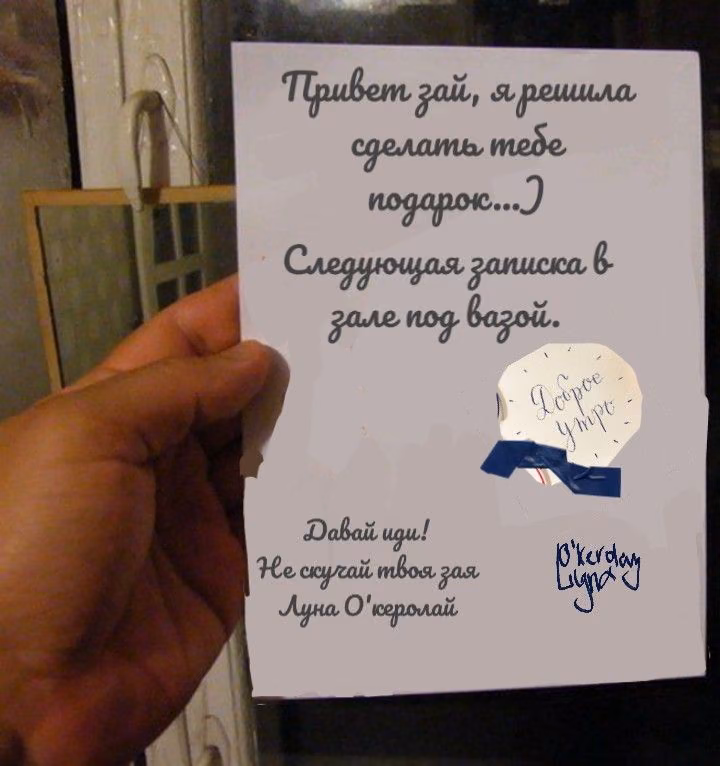 Привет зай, я решила
сделать тебе
подарок...)
Следующая записка в
зале под вазой.
Доброе
утро
Давай иди!
Не скучай твоя зая
Луна О'керолай